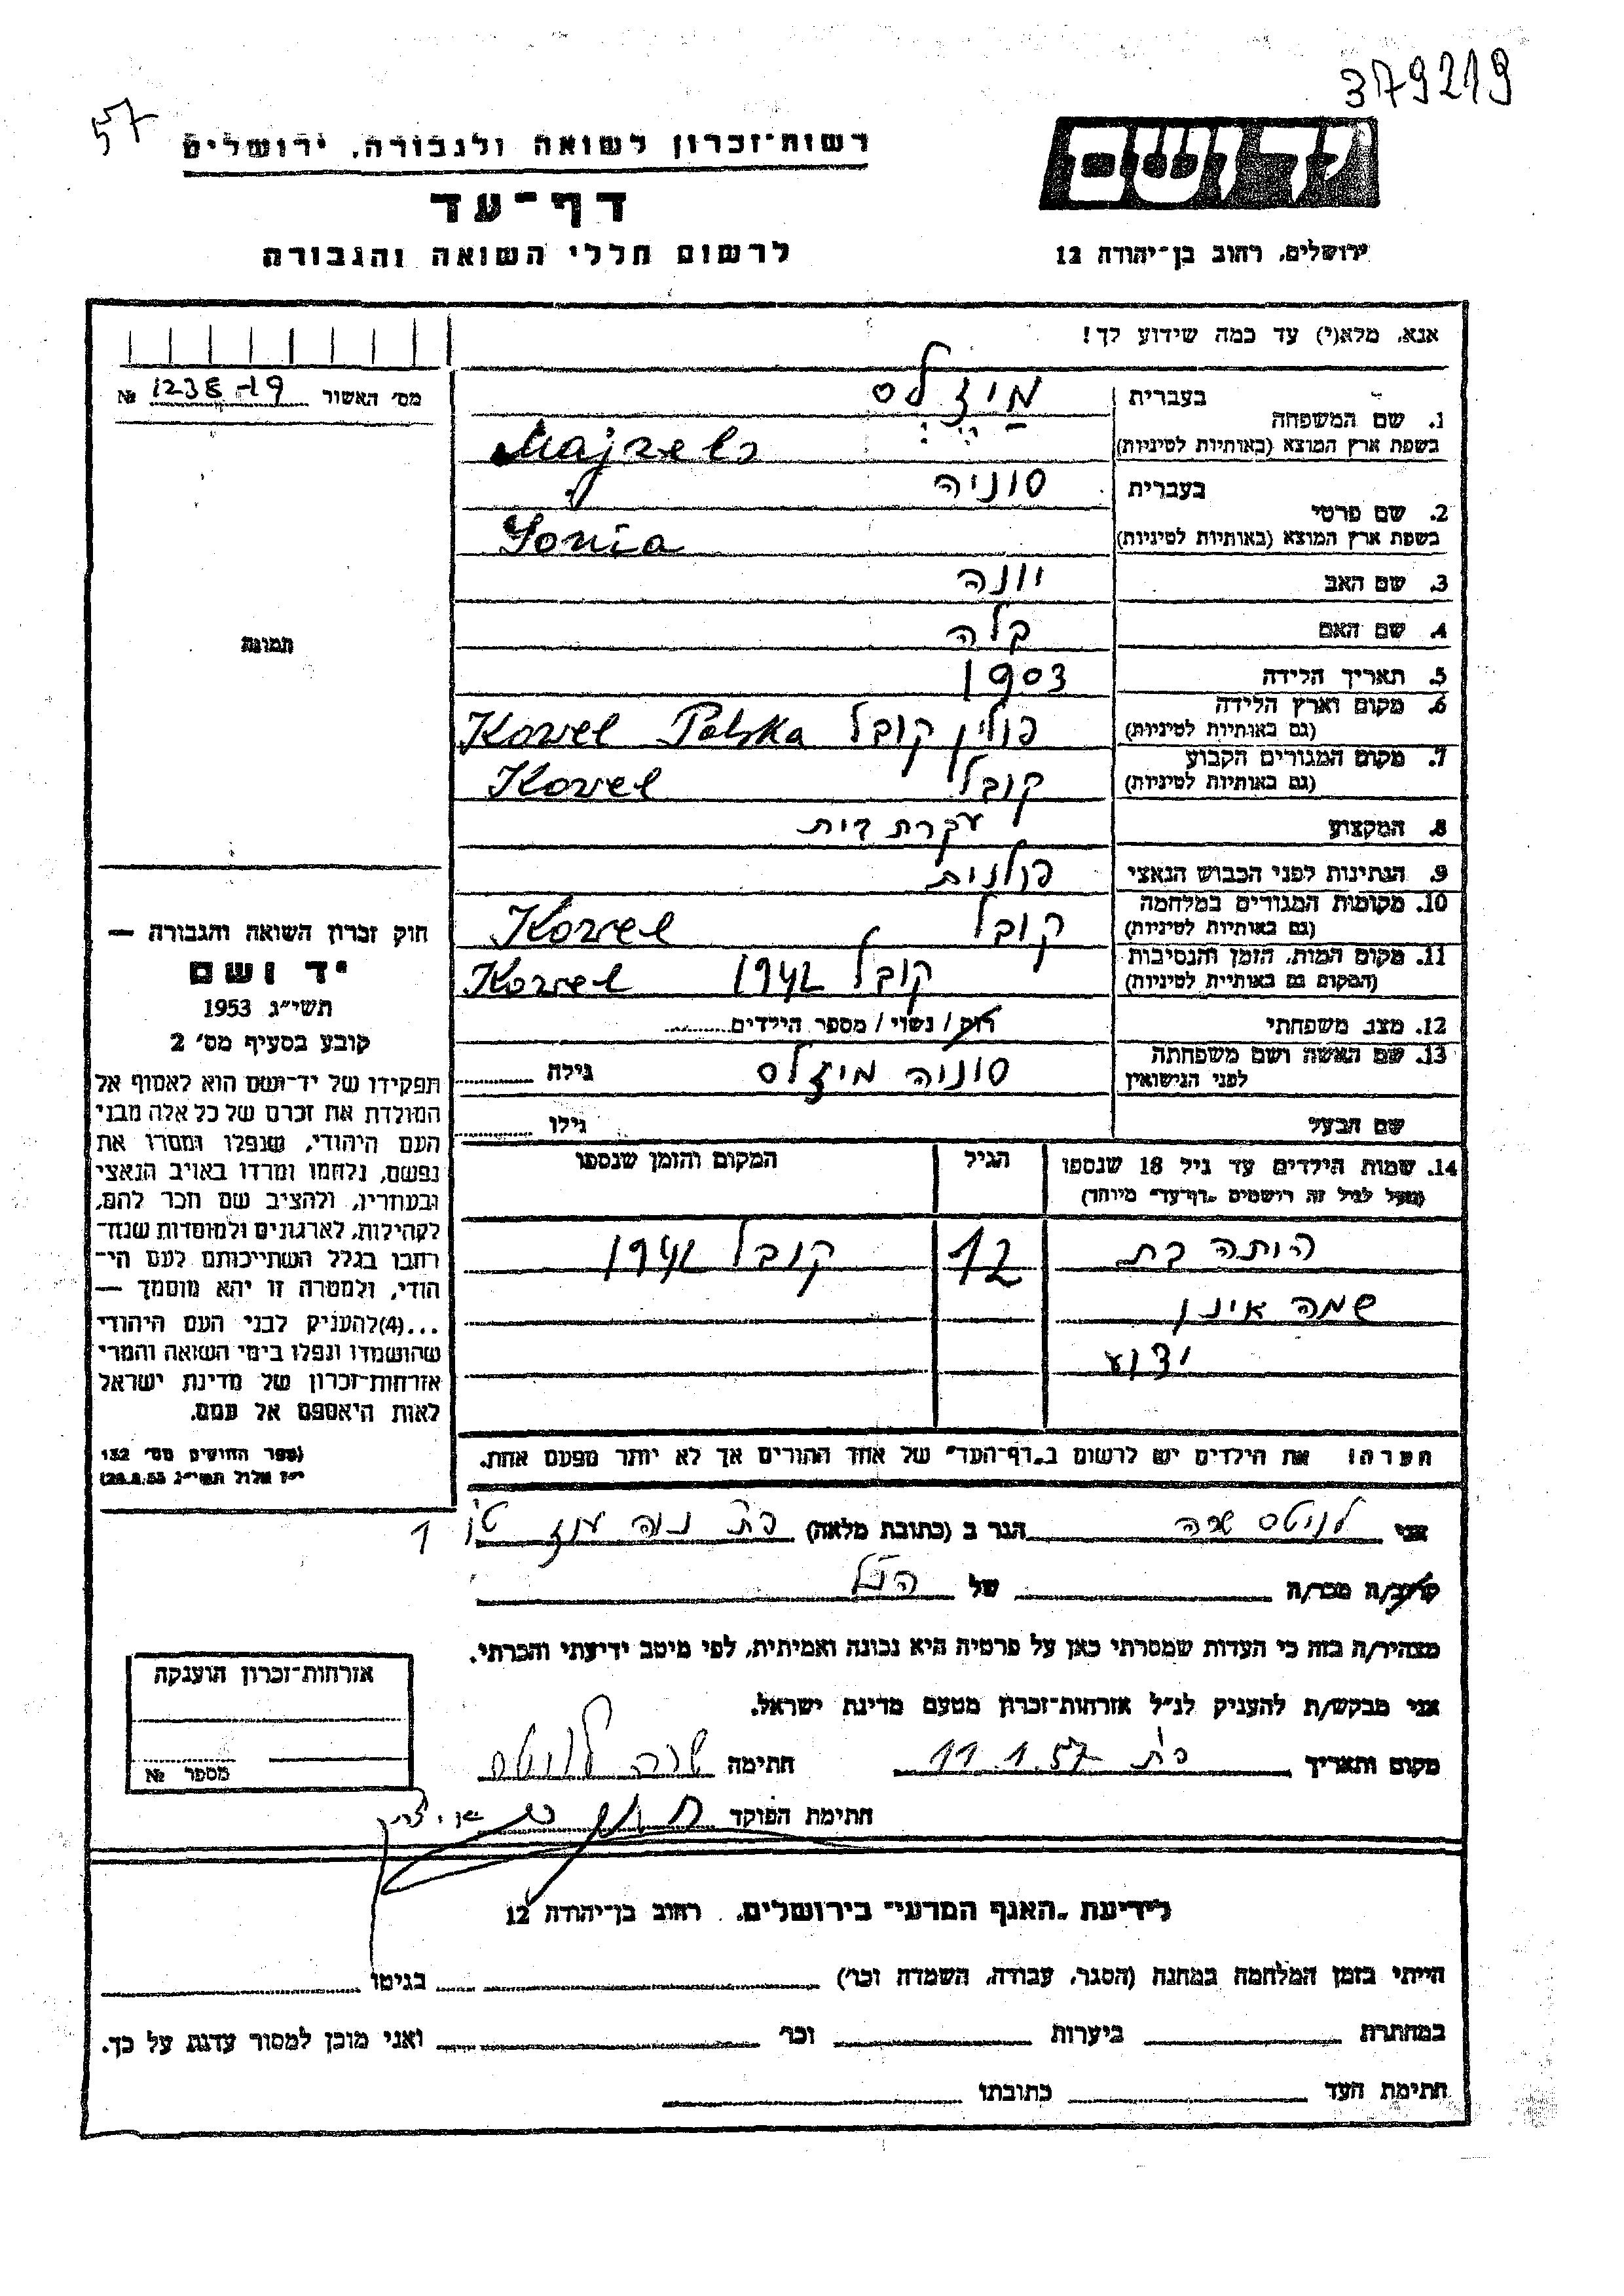 379219
57
יד ושם
רשות־זכרון לשואה ולגבורה, ירושלים
דף־עד
לרשום חללי השואה והגבורה
ירושלים, רחוב בן־יהודה 12
אנא, מלא(י) עד כמה שידוע לך!
מס׳ האשור 1238-19 №
1. שם המשפחה
בעברית מיזלס
בשפת ארץ המוצא (באותיות לטיניות) Majzels
2. שם פרטי
בעברית סוניה
בשפת ארץ המוצא (באותיות לטיניות) Sonia
3. שם האב יונה
4. שם האם
5. תאריך הלידה 1903
6. מקום וארץ הלידה פולין קובל Kowel Polska
(גם באותיות לטיניות)
7. מקום המגורים הקבוע קובל Kowel
(גם באותיות לטיניות)
8. המקצוע עקרת בית
9. הנתינות לפני הכבוש הנאצי פולנית
10. מקומות המגורים במלחמה קובל Kowel
(גם באותיות לטיניות)
11. מקום המות, הזמן והנסיבות קובל 1942 Kowel
(המקום גם באותיות לטיניות)
12. מצב משפחתי רוק / נשוי / מספר הילדים
13. שם האשה ושם משפחתה סוניה מיזלס גילה
לפני הנישואין
שם הבעל גילו
14. שמות הילדים עד גיל 18 שנספו הגיל המקום והזמן שנספו
(מעל לגיל זה רושמים „דף־עד" מיוחד)
היתה בת 12 קובל 1942
שמה אינו
ידוע
הערה! את הילדים יש לרשום ב„דף־העד" של אחד ההורים אך לא יותר מפעם אחת.
תמונה
חוק זכרון השואה והגבורה —
יד ושם
תשי״ג 1953
קובע בסעיף מס׳ 2
תפקידו של יד־ושם הוא לאסוף אל
המולדת את זכרם של כל אלה מבני
העם היהודי, שנפלו ומסרו את
נפשם, נלחמו ומרדו באויב הנאצי
ובעוזריו, ולהציב שם וזכר להם,
לקהילות, לארגונים ולמוסדות שנח־
רבו בגלל השתייכותם לעם הי־
הודי, ולמטרה זו יהא מוסמך —
...(4)להעניק לבני העם היהודי
שהושמדו ונפלו בימי השואה והמרי
אזרחות־זכרון של מדינת ישראל
לאות היאספם אל עמם.
(ספר החוקים מס׳ 132
י״ז אלול תשי״ג 28.8.53)
אני שרה הגר ב (כתובת מלאה)
קרוב/ה מכר/ה של הנ״ל
מצהיר/ה בזה כי העדות שמסרתי כאן על פרטיה היא נכונה ואמיתית, לפי מיטב ידיעתי והכרתי.
אני מבקש/ת להעניק לנ״ל אזרחות־זכרון מטעם מדינת ישראל.
מקום ותאריך 11.1.57 חתימה שרה
חתימת הפוקד
אזרחות־זכרון הוענקה
מספר №
לידיעת „האגף המדעי" בירושלים, רחוב בן־יהודה 12
הייתי בזמן המלחמה במחנה (הסגר, עבודה, השמדה וכו׳) בגיטו
במחתרת ביערות וכו׳ ואני מוכן למסור עדות על כך.
חתימת העד כתובתו